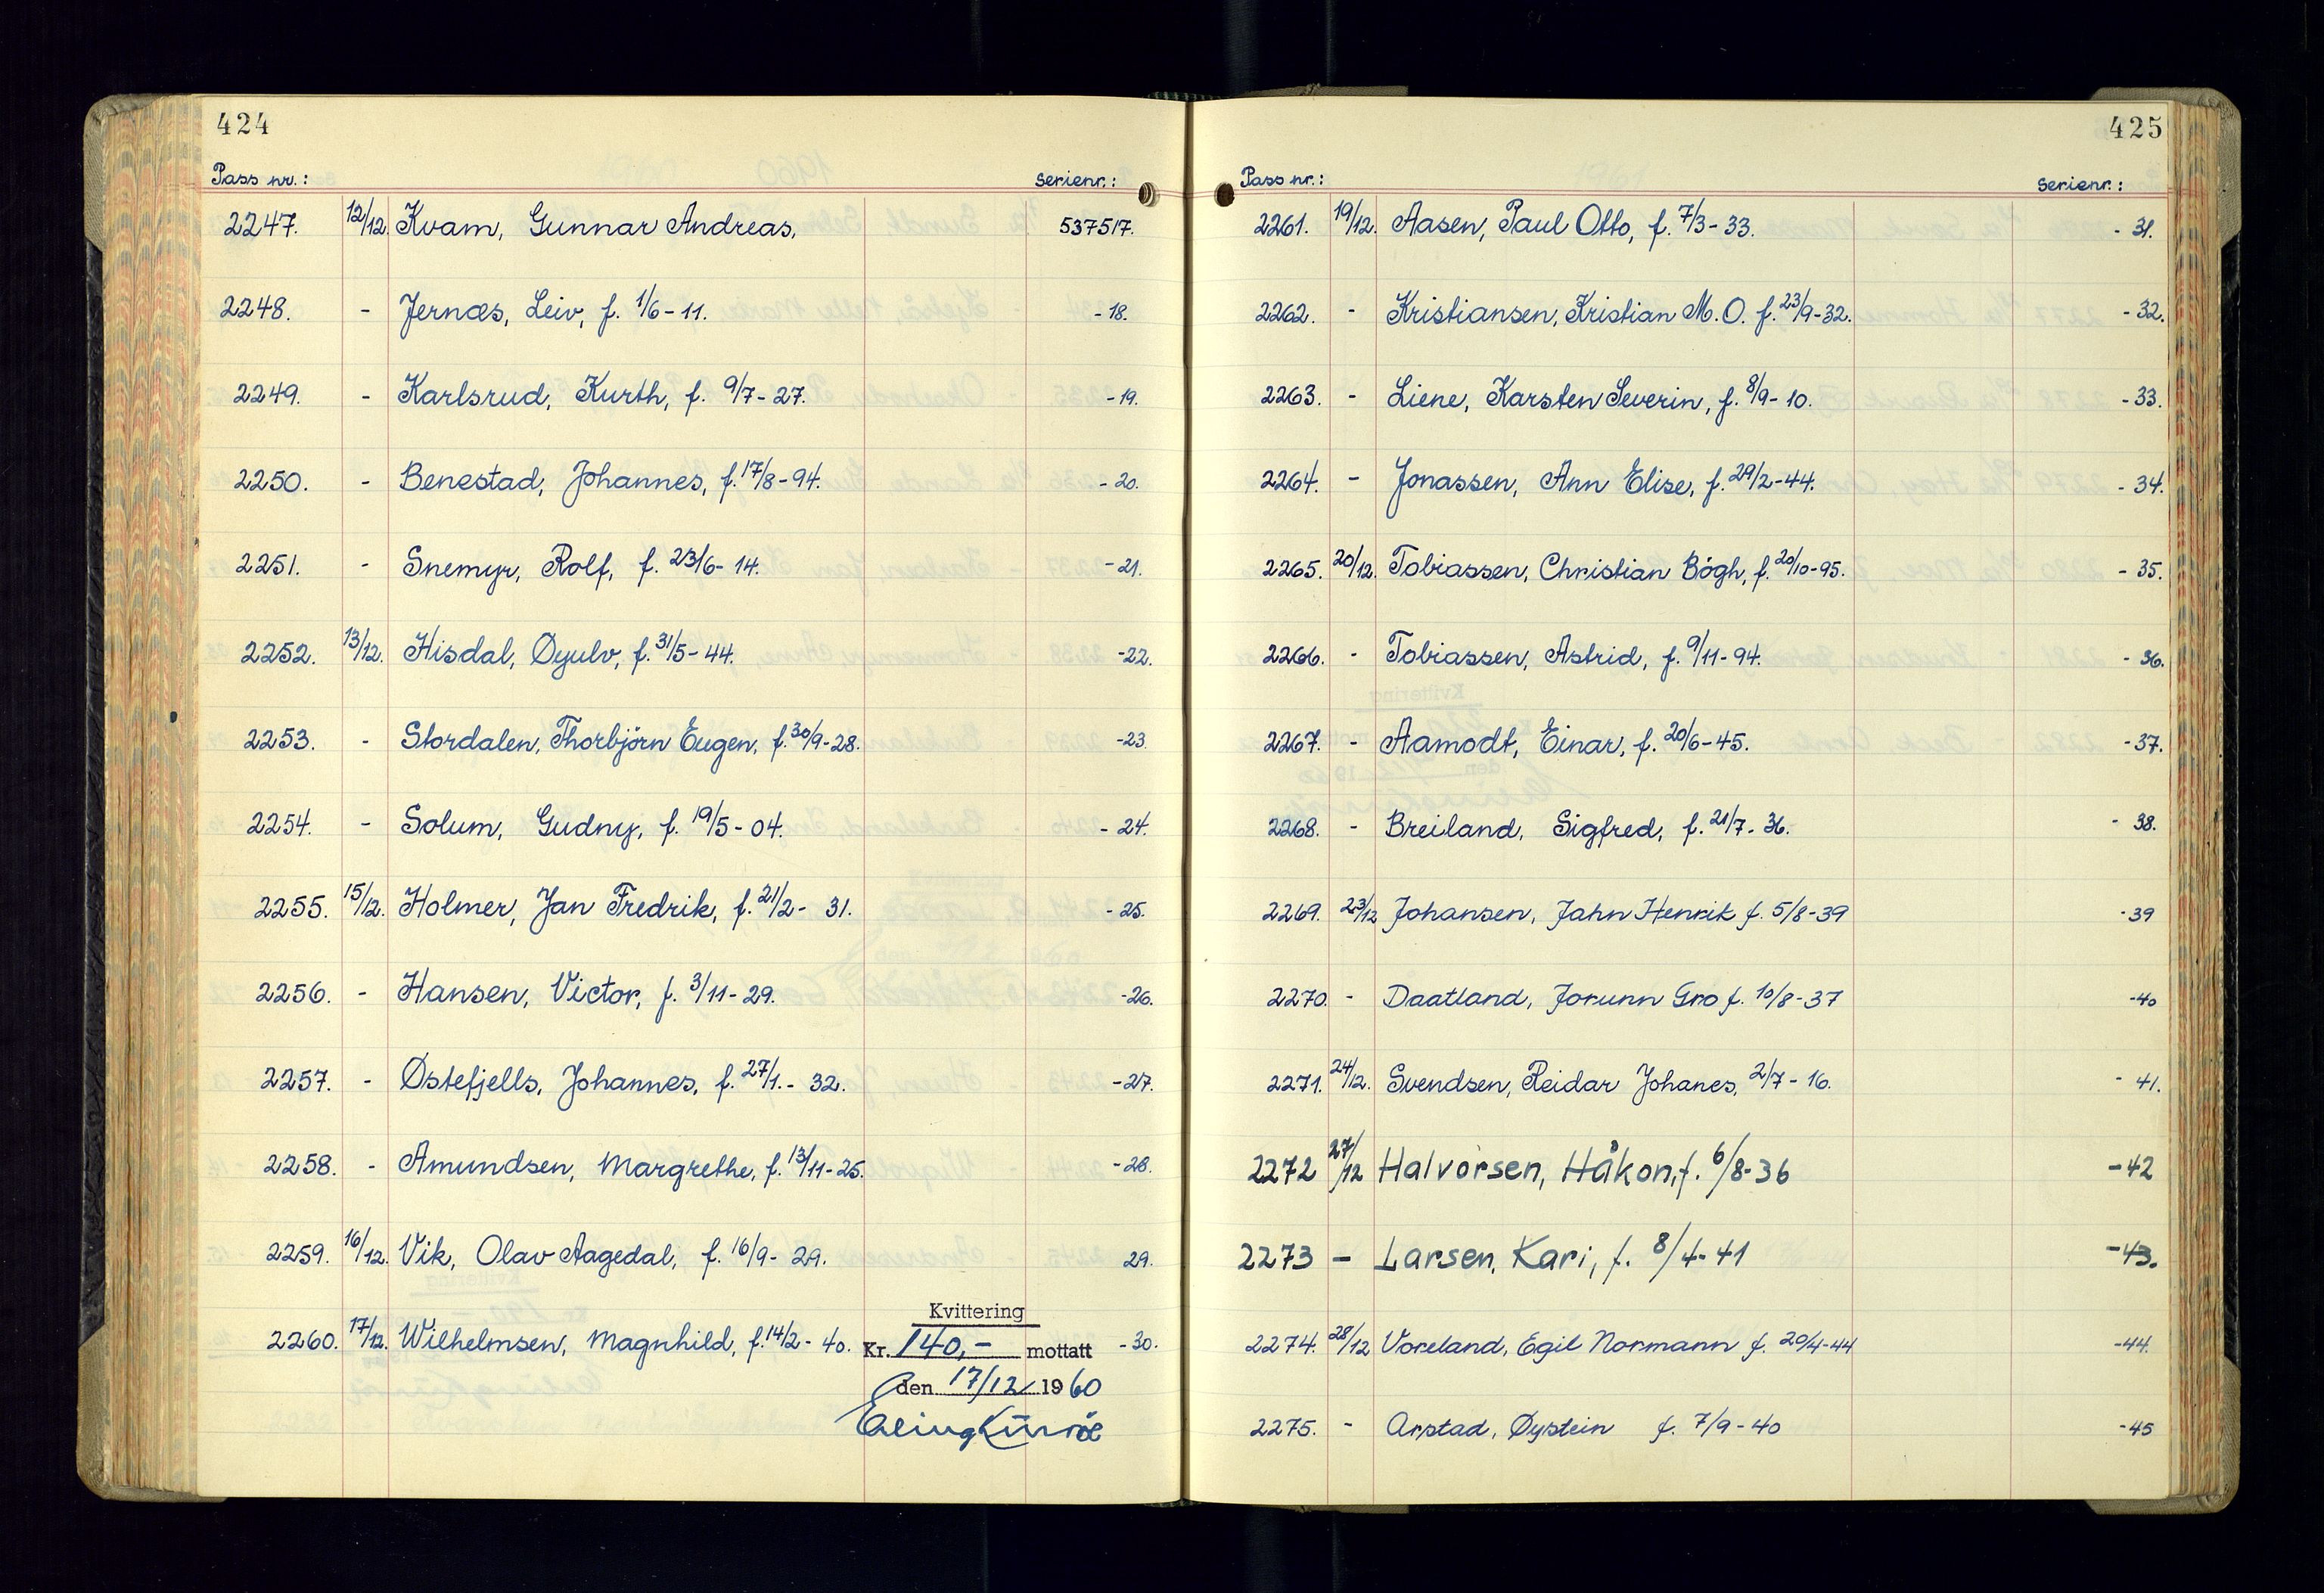 424
Pass nr.: Serienr.:
2247. 12/12. Kvam, Gunnar Andreas, 537517.
2248. - Jernæs, Leiv, f. 1/6-11. -18.
2249. - Karlsrud, Kurth, f. 9/7-27. -19.
2250. - Benestad, Johannes, f. 17/8-94. -20.
2251. - Snemyr, Rolf, f. 23/6-14. -21.
2252. 13/12. Hisdal, Øyulv, f. 31/5-44. -22.
2253. - Stordalen, Thorbjörn Eugen, f. 30/9-28. -23.
2254. - Solum, Gudny, f. 19/5-04. -24.
2255. 15/12. Holmer, Jan Fredrik, f. 21/2- 31. -25.
2256. - Hansen, Victor, f. 3/11-29. -26.
2257. - Østefjells, Johannes, f. 27/1.- 32. -27.
2258. - Amundsen, Margrethe, f. 13/11-25. -28.
2259. 16/12. Vik, Olav Aagedal, f. 16/9- 29. 29.
Kvittering
2260. 17/12. Wilhelmsen, Magnhild, f. 14/2- 40. Kr. 140,- mottatt -30.
den 17/12 1960
425
Pass nr.: Serienr.:
2261. 19/12. Aasen, Paul Otto, f. 7/3-33. - 31.
2262. - Kristiansen, Kristian M. O. f. 23/9-32. - 32.
2263. - Liene, Karsten Severin, f. 8/9-10. - 33.
2264. - Jonassen, Ann Elise, f. 29/2-44. - 34.
2265. 20/12. Tobiassen, Christian Bögh, f. 20/10-95. - 35.
2266. - Tobiassen, Astrid, f. 9/11-94. - 36.
2267. - Aamodt, Einar, f. 20/6-45. - 37.
2268. - Breiland, Sigfred, f. 21/7-36. - 38.
2269. 23/12 Johansen, Jahn Henrik f. 5/8-39 -39
2270. - Daatland, Jorunn Gro f. 10/8-37 -40
2271. 24/12. Svendsen, Reidar Johanes, 2/7-16. - 41.
2272 27/12 Halvorsen, Håkon, f. 6/8-36 -42
2273 - Larsen, Kari, f. 8/4-41 -43.
2274. 28/12 Voreland, Egil Normann f. 20/4-44 -44.
2275. - Arstad, Øystein f. 7/9-40 -45